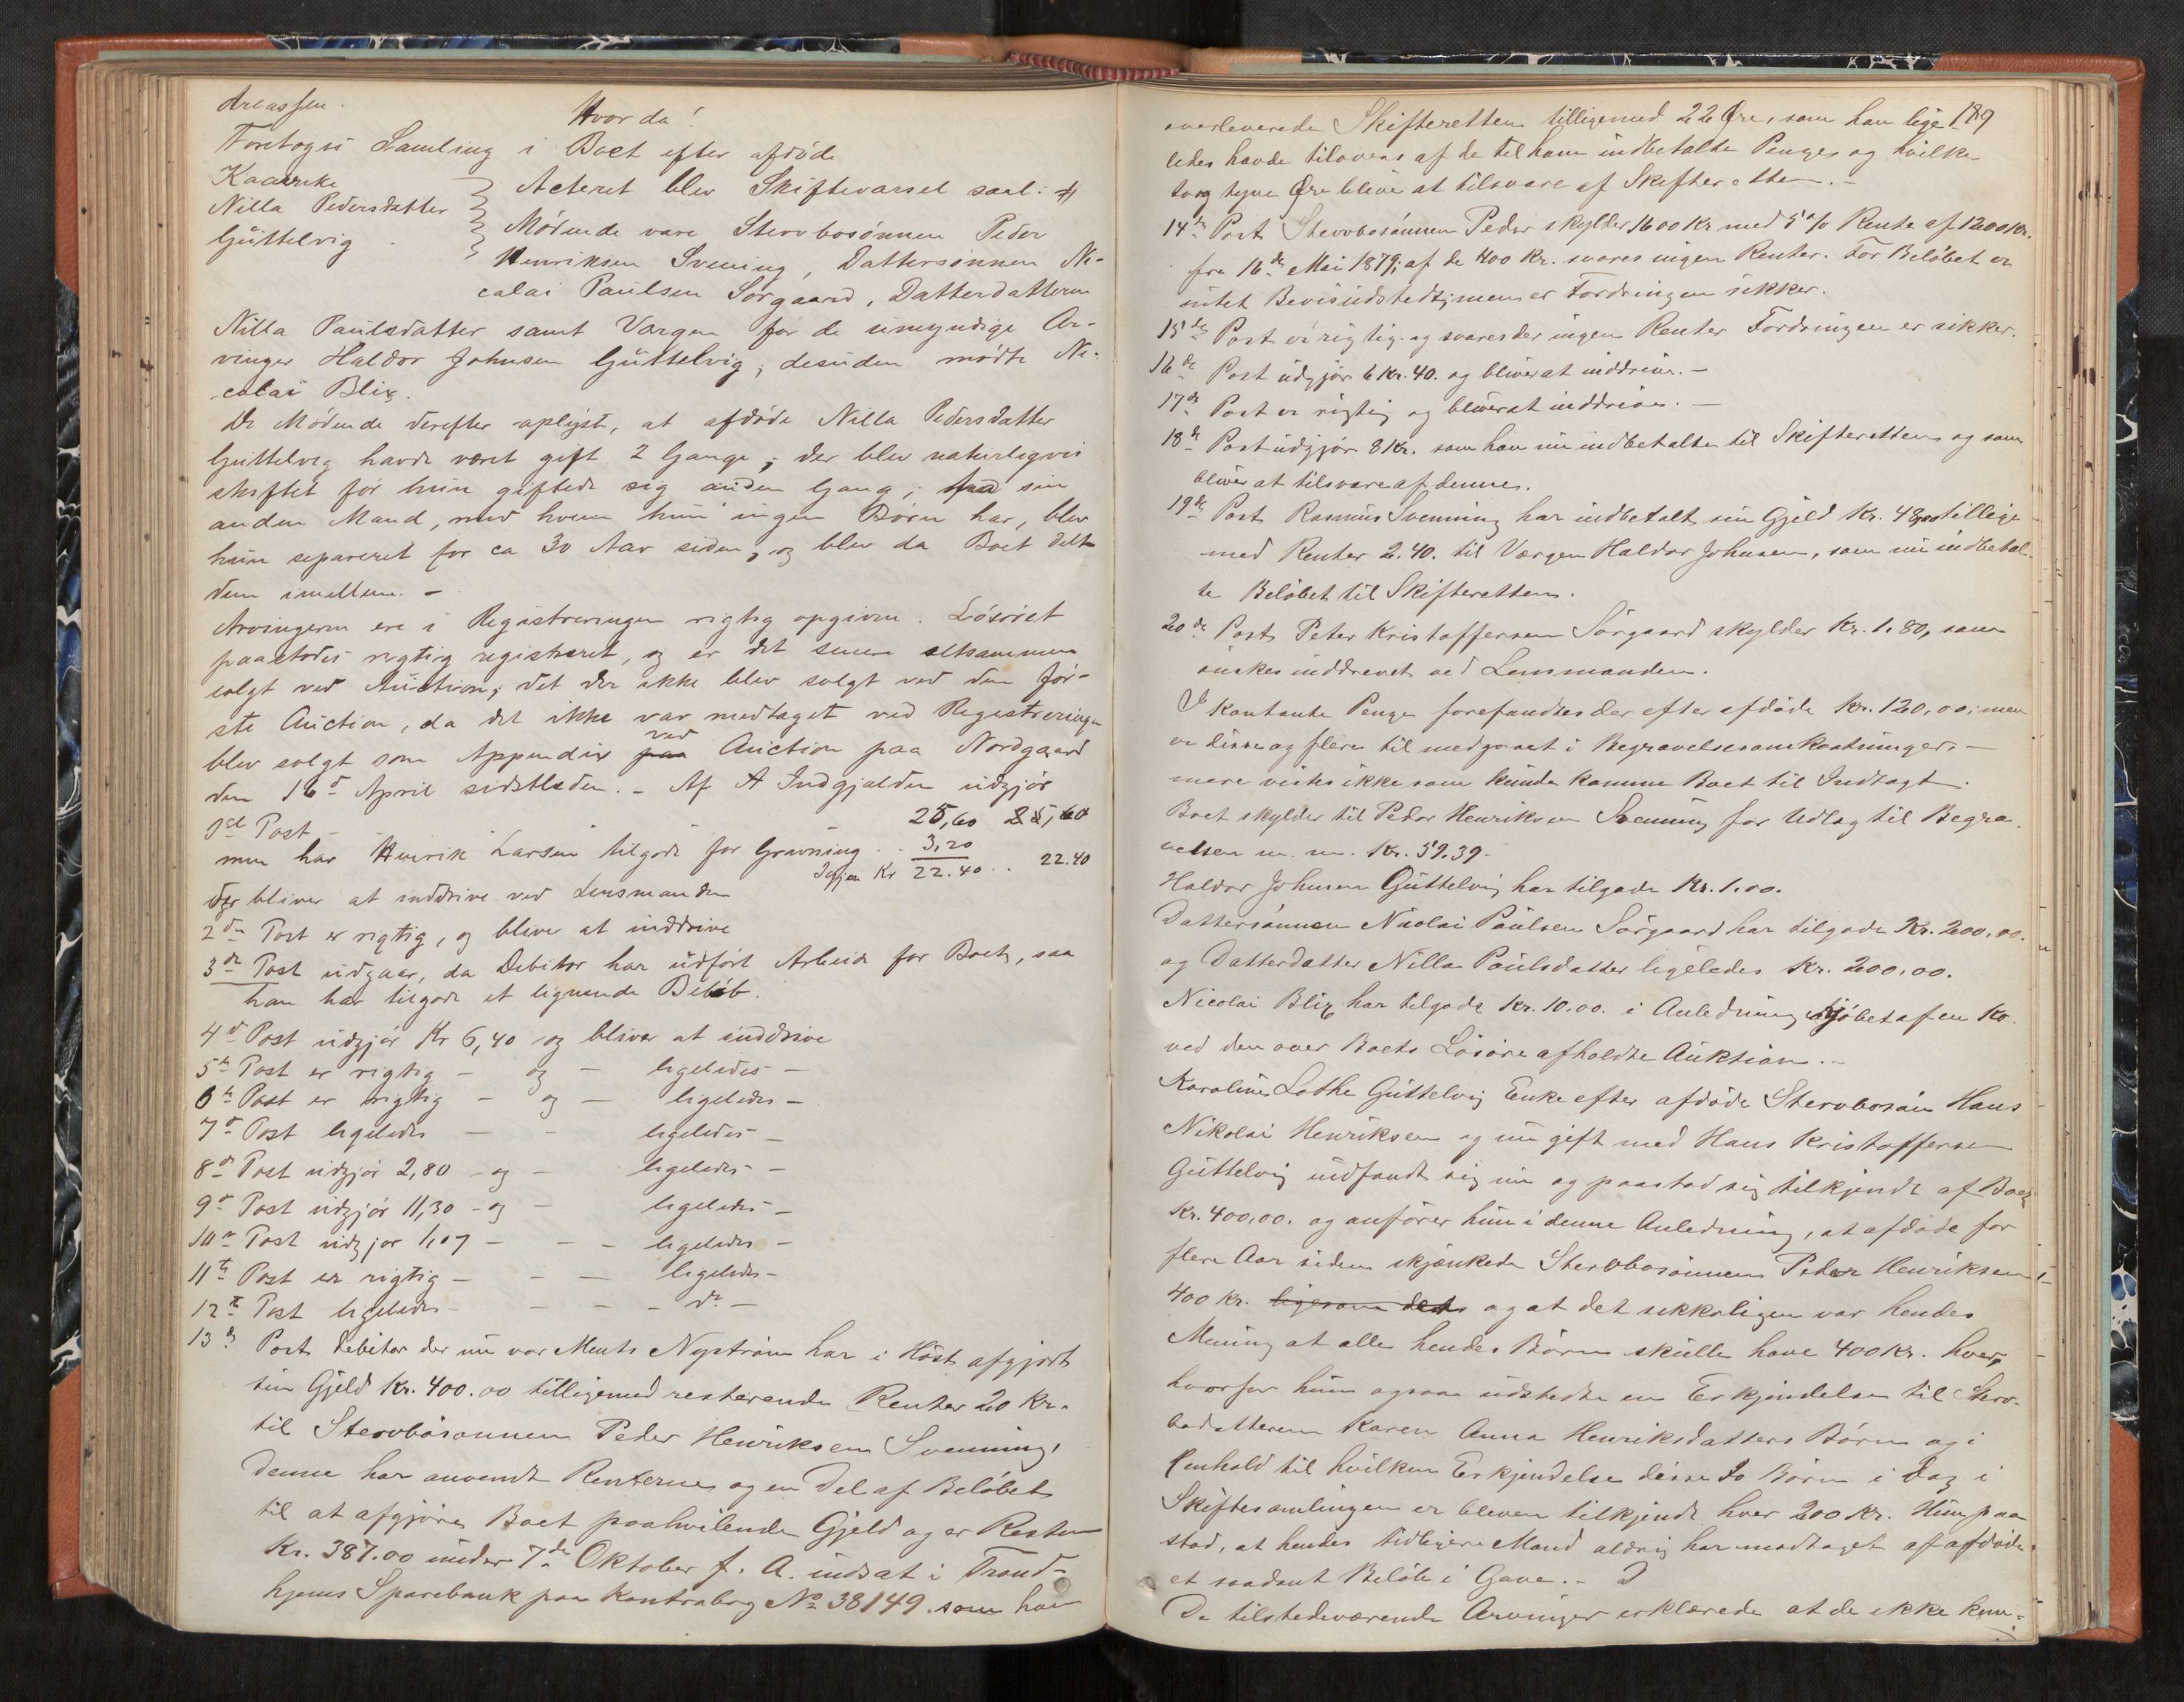 Hvor da!
Foretoges Samling i Boet efter afdöde
Kaarske
Nilla Pedersdatter
Guttelvig
Acteret blev Skiftevarsel saal:
Mödende vare Stervbosönnen Peder
Henriksen Svening, Dattersönnen Ni-
colai Paulsen Sörgaard, Datterdatteren
Nilla Paulsdatter samt Værgen for de umyndige Ar-
vinger Haldor Johnsen Guttelvig; desuden mödte Ni-
colai Blix.
De Mödende derefter oplyste, at afdöde Nilla Pedersdatter
Guttelvig havde været gift 2 Gange; der blev naturligvis
skiftet för hun giftede sig anden Gang; fra sin
anden Mand, med hvem hun ingen Börn har, blev
hun separeret for ca 30 Aar siden, og blev da Boet delt
dem imellem. -
Arvingerne ere i Registreringen rigtig opgivne. Lösöret
paastodes rigtig registreret, og er det senere altsammen
solgt ved Auction; det der ikke blev solgt ved den för-
ste Auction, da det ikke var medtaget ved Registreringen
blev solgt som Appendix paa ved Auction paa Nordgaard
den 16d April sidstleden. - Af A Indgjælden udgjör
1st Post - 25,60 25,60
men har Henrik Larsen tilgode for Gravning . . 3,20
Igjen Kr 22.40 . . 22.40
der bliver at inddrive ved Lensmanden
2den Post er rigtig, og bliver at inddrive
3die Post udgaar, da Debitor har udfört Arbeide for Boet, saa
han har tilgode et lignende Belöb.
4d Post udgjör Kr 6,40 og bliver at inddrive
5t Post er rigtig - og - ligeledes -
6t Post er rigtig - og - ligeledes -
7d Post ligeledes - - ligeledes -
8d Post udgjör 2,80 - og - ligeledes -
9d Post udgjör 11,30 - og - ligeledes -
10d Post udgjör 1,07 - - - ligeledes -
11t Post er rigtig - - - ligeledes -
12t Post ligeledes - - - - do -
13de Post Debitor der nu var Ments Nyström har i Höst afgjort
sin Gjeld Kr. 400.00 tilligemed resterende Renter 20 Kr.
til Stervbosönnen Peder Henriksen Svenning,
denne har anvendt Renterne og en Del af Belöbet
til at afgjöre Boet paahvilende Gjeld og er Resten
Kr. 387.00 under 7de Oktober f. A. indsat i Trond-
hjems Sparebank paa Kontrabog No 38149. som han
overleverede Skifteretten tilligemed 22 Øre, som han lige 189
ledes havde tilovers af de til ham indbetalte Penge og hvilke
to og tyve Øre bliver at tilsvare af Skifteretten. -
14de Post Stervbosönnen Peder skylder 1600 Kr med 5% Rente af 1200 Kr.
fra 16de Mai 1879; af de 400 Kr. svares ingen Renter. For Belöbet er
intet Bevis udstedt; men er Fordringen sikker.
15de Post er rigtig og svares der ingen Renter Fordringen er sikker.
16de Post udgjör 6 Kr. 40. og bliver at inddrive. -
17de Post er rigtig og bliver at inddrives. -
18de Post udgjör 8 Kr. som han nu indbetalte til Skifteretten og som
bliver at tilsvare af denne.
19de Post Rasmus Svenning har indbetalt sin Gjeld Kr. 48,00 tillige
med Renter 2.40. til Værgen Haldor Johnsen, som nu indbetal-
te Belöbet til Skifteretten.
20de Post Peter Kristoffersen Sörgaard skylder Kr. 1.80, som
önskes inddrevet ved Lensmanden.
I Kontante Penge forefandtes der efter afdöde Kr. 120,00; men
er disse og flere til medgaaet i Begravelsesomkostninger. -
mere vistes ikke som kunde komme Boet til Indtægt.
Boet skylder til Peder Henriksen Svenning for Udlæg til Begra-
velsen m. m. Kr. 59.39.
Haldor Johnsen Guttelvig har tilgode Kr. 1.00.
Dattersönnen Nicolai Paulsen Sörgaard har tilgode Kr. 200.00.
og Datterdatter Nilla Paulsdatter ligeledes Kr. 200.00.
Nicolai Blix har tilgode Kr. 10.00. i Anledning Kjöbet af en Ko
ved den over Boets Lösöre afholdte Auktion. -
Karoline Lothe Guttelvig Enke efter afdöde Stervbosön Hans
Nikolai Henriksen og nu gift med Hans Kristoffersen
Guttelvig indfandt sig nu og paastod sig tilkjendt af Boet
Kr. 400,00. og anförer hun i denne Anledning, at afdöde for
flere Aar siden skjænkede Stervbosönnen Peder Henriksen
400 Kr. ligesom dets og at det sikkerligen var hendes
Mening at alle hendes Börn skulle have 400 Kr. hver,
hvorfor hun ogsaa udstedte en Erkjendelse til Sterv-
bodatteren Karen Anna Henriksdatters Börn og i
Henhold til hvilken Erkjendelse disse to Börn i Dag i
Skiftesamlingen er bleven tilkjendt hver 200 Kr. Hun paa
stod, at hendes tidligere Mand aldrig har modtaget af afdöde
et saadant Belöb i Gave. -
De tilstedeværende Arvinger erklærede at de ikke kun-